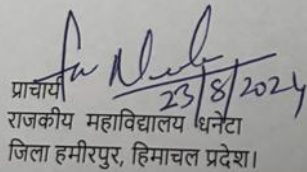 प्राचार्य
23/8/2024
राजकीय महाविद्यालय धनेटा
जिला हमीरपुर, हिमाचल प्रदेश।